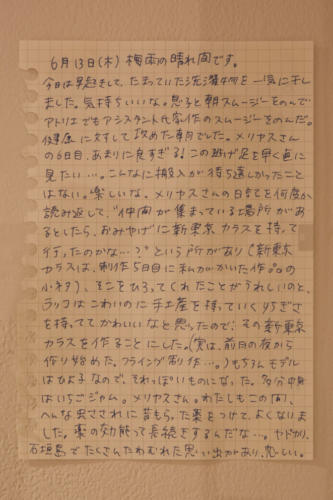 6月13日(木) 梅雨の晴れ間です。
今日は早起きして、たまっていた洗濯物を一気に干し
ました。気持ちいいな。息子と朝スムージーをのんで
アトリエでもアシスタント氏家作のスムージーをのんだ。
健康に対して攻めた朝でした。メリヤスさん
の6日目、あまりに良すぎる!この逃げ足を早く直に
見たい…。こんなに搬入が待ち遠しかったこと
はない。楽しいな。メリヤスさんの日記を何度か
読み返して、"仲間が集まっている場所があ
るとしたら、おみやげに新東京カラスを持って
行ったのかな…?"という所があり(新東京
カラスは、制作5日目に私がかいた作品の
小ネタ)、そこをひろってくれたことがうれしいのと、
ラッコはこわいのに手土産を持っていく律ぎさ
を持っててかわいいなと思ったので、その新東京
カラスを作ることにした。(実は、前日の夜から
作り始めた。フライング制作…。)もちろんモデル
はひよ子なので、それっぽいものになった。多分中身
はいちごジャム。メリヤスさん。わたしもこの間、
へんな虫さされに昔もらった薬をつけて、よくなりま
した。薬の効能って長続きするんだな…。ヤドカリ、
石垣島でたくさんたわむれた思い出があり、恋しい。